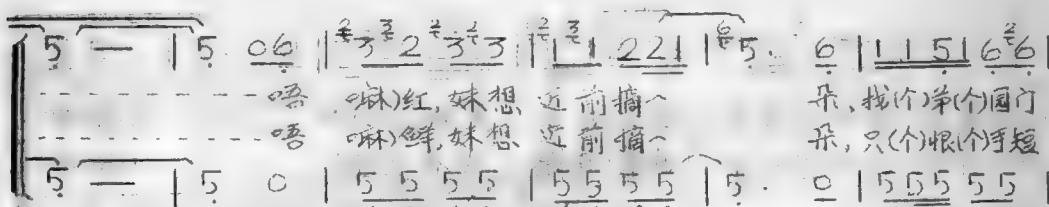 5 — | 5 06 | 3 2 3 3 | 1 1 2 2 1 | 5. 6 | 1 1 5 1 6 6 |
唔 嘛)红,妹想 近前摘一 朵,找(个)(个)园门
唔 嘛)鲜,妹想 近前摘一 朵,只(个)恨(个)手短
5 — | 5 0 | 5 5 5 5 | 5 5 5 5 | 5. 0 | 5 5 5 5 5 |